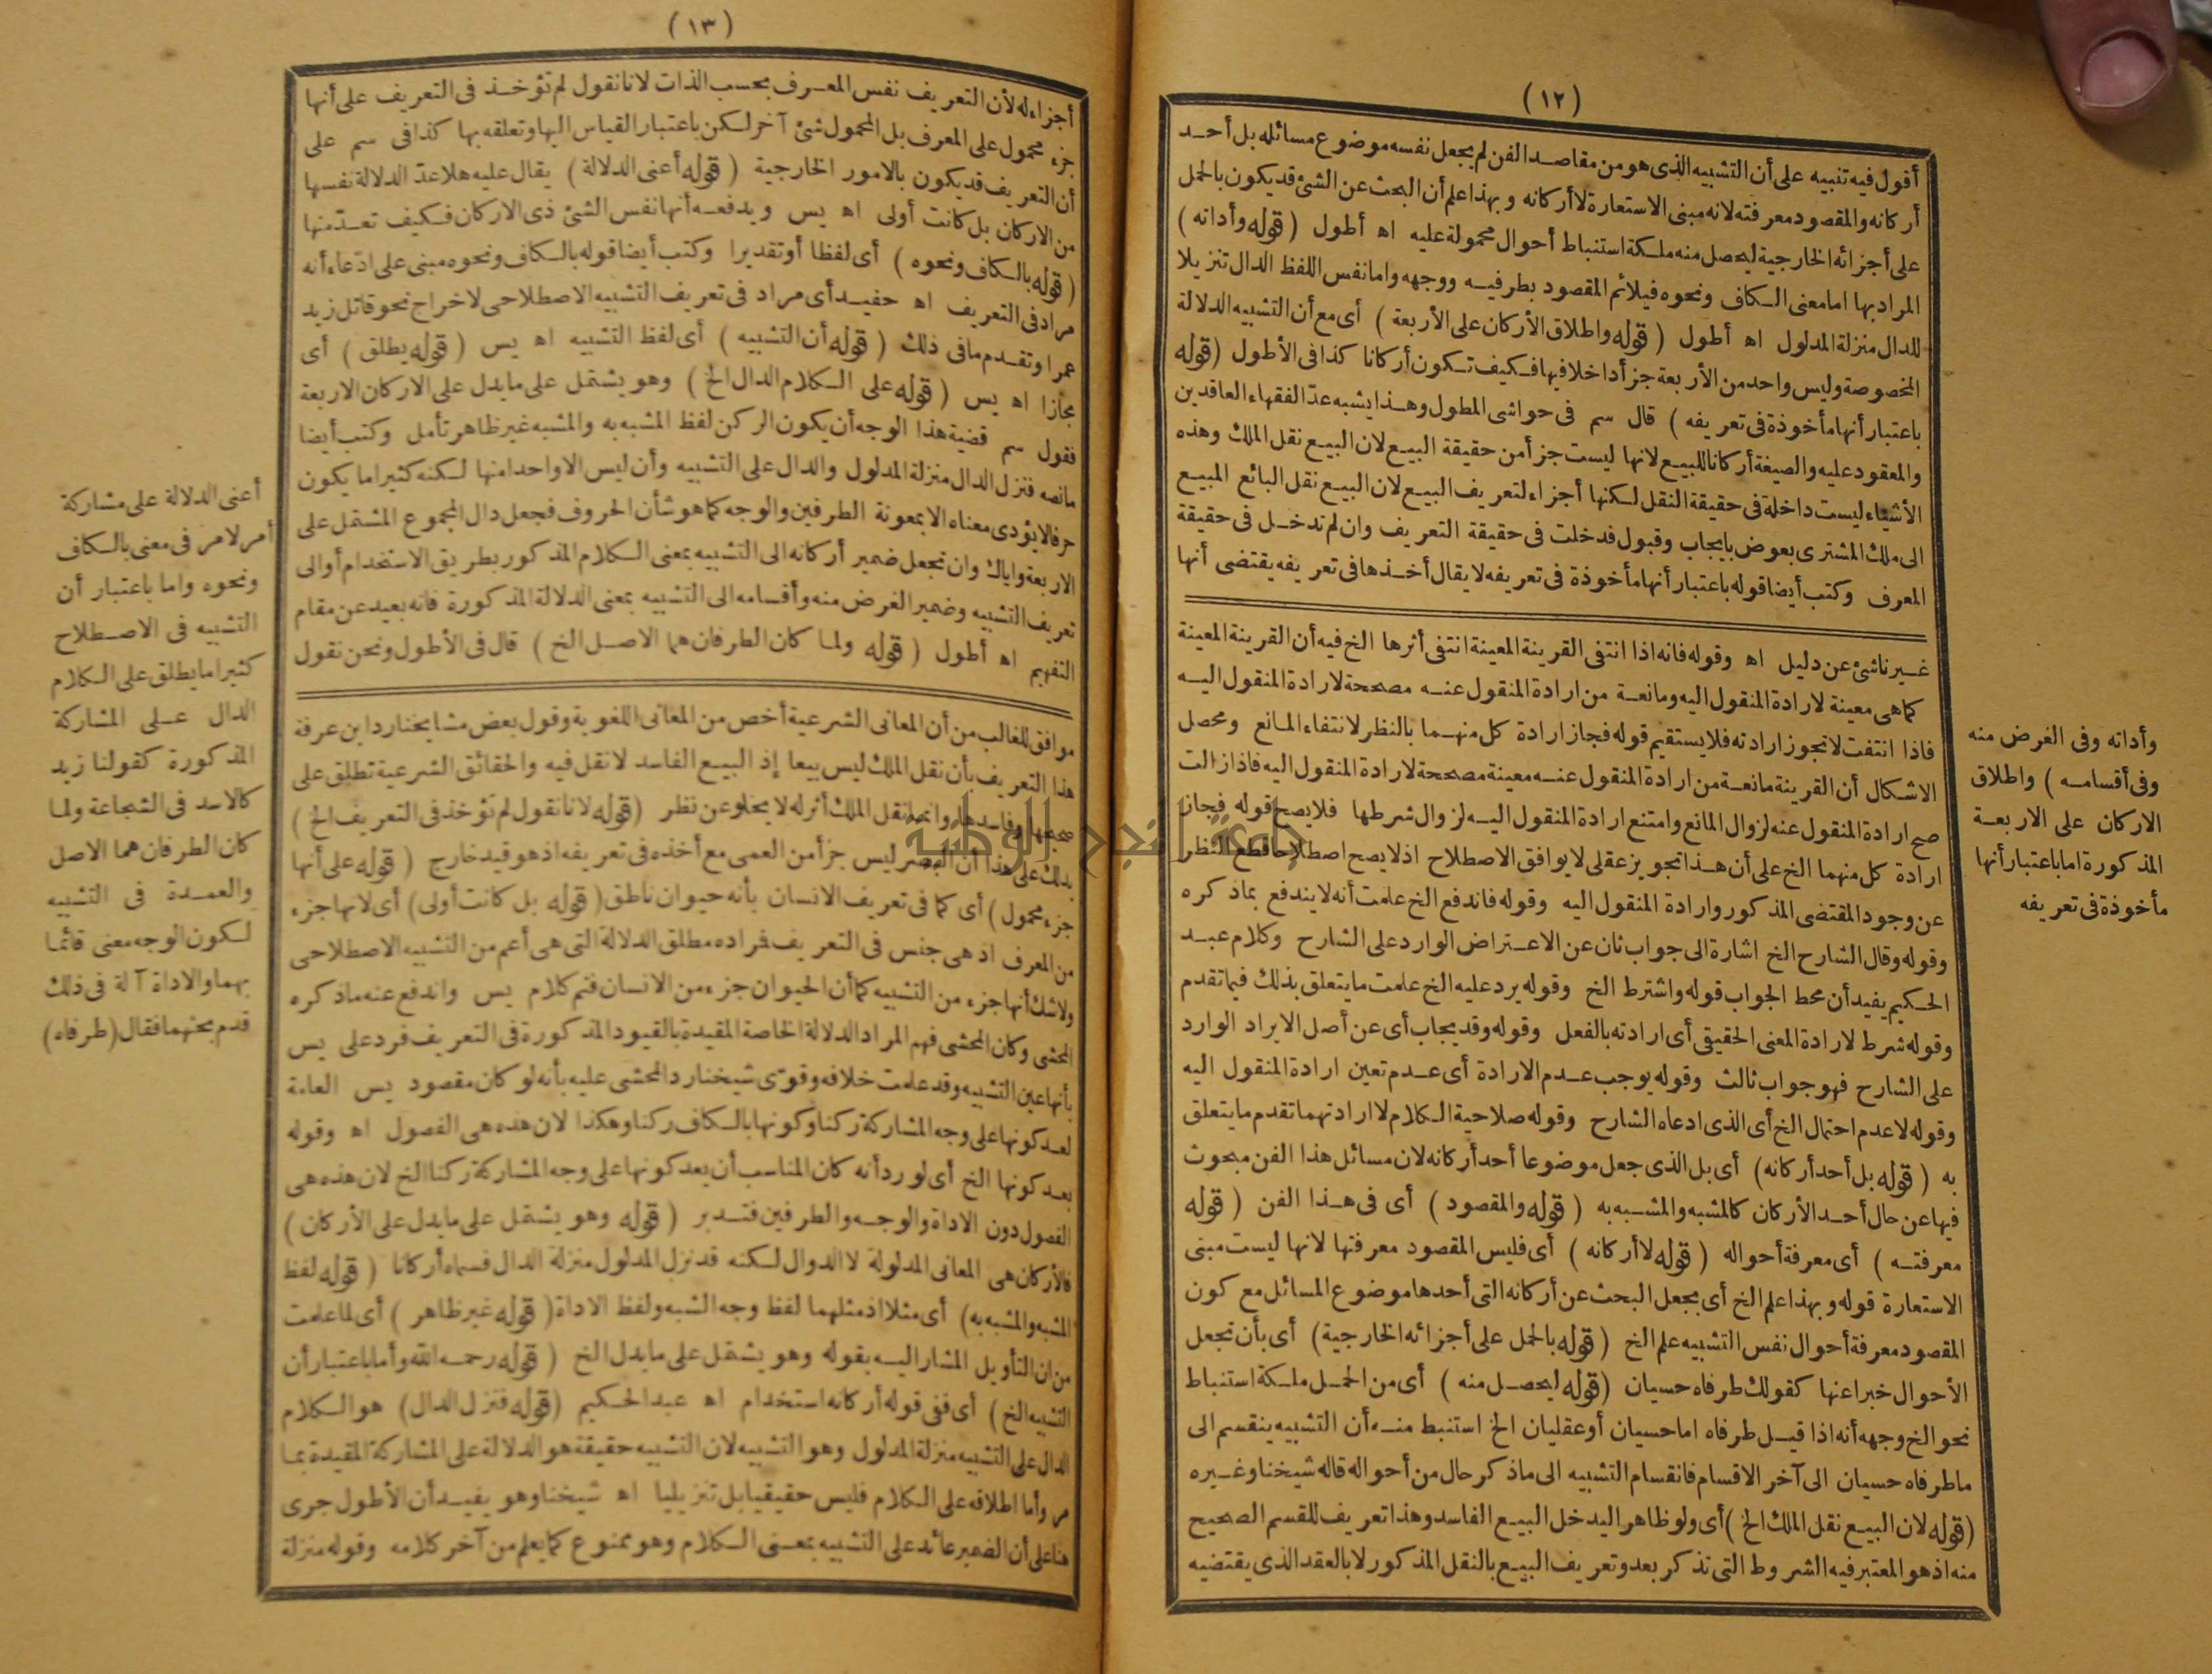 (١٢)
أقول فيه تنبيه على أن التشبيه الذى هو من مقاصد الفن لم يجعل نفسه موضوع مسائله بل أحد
أركانه والمقصود معرفته لانه مبنى الاستعارة لا أركانه وبهذا علم أن البحث عن الشئ قد يكون بالحمل
على أجزائه الخارجية ليحصل منه ملكة استنباط أحوال محمولة عليه اه أطول (قوله وأداته)
المراد بها اما معنى الكاف ونحوه فيلائم المقصود بطرفيه ووجهه واما نفس اللفظ الدال تنزيلا
للدال منزلة المدلول اه أطول (قوله واطلاق الأركان على الأربعة) أى مع أن التشبيه الدلالة
المخصوصة وليس واحد من الأربعة جزأ داخلا فيها فكيف تكون أركانا كذا فى الأطول (قوله
باعتبار أنها مأخوذة فى تعريفه) قال سم فى حواشى المطول وهذا يشبه عدّ الفقهاء العاقدين
والمعقود عليه والصيغة أركانا للبيع لانها ليست جزأ من حقيقة البيع لان البيع نقل الملك وهذه
الأشياء ليست داخلة فى حقيقة النقل لكنها أجزاء لتعريف البيع لان البيع نقل البائع المبيع
الى ملك المشترى بعوض بايجاب وقبول فدخلت فى حقيقة التعريف وان لم تدخل فى حقيقة
المعرف وكتب أيضا قوله باعتبار أنها مأخوذة فى تعريفه لا يقال أخذها فى تعريفه يقتضى أنها
غير ناشئ عن دليل اه وقوله فانه اذا انتفى القرينة المعينة انتفى أثرها الخ فيه أن القرينة المعينة
كما هى معينة لارادة المنقول اليه ومانعة من ارادة المنقول عنه مصححة لارادة المنقول اليه
فاذا انتفت لا تجوز ارادته فلا يستقيم قوله فجاز ارادة كل منهما بالنظر لانتفاء المانع ومحصل
الاشكال أن القرينة مانعة من ارادة المنقول عنه معينة مصححة لارادة المنقول اليه فاذا زالت
صح ارادة المنقول عنه لزوال المانع وامتنع ارادة المنقول اليه لزوال شرطها فلا يصح قوله فجاز
ارادة كل منهما الخ على أن هذا تجويز عقلى لا يوافق الاصطلاح اذ لا يصح اصطلاحا قطع النظر
عن وجود المقتضى المذكور وارادة المنقول اليه وقوله فاندفع الخ علمت أنه لا يندفع بما ذكره
وقوله وقال الشارح الخ اشارة الى جواب ثان عن الاعتراض الوارد على الشارح وكلام عبد
الحكيم يفيد أن محط الجواب قوله واشترط الخ وقوله يرد عليه الخ علمت ما يتعلق بذلك فيما تقدم
وقوله شرط لارادة المعنى الحقيقى أى ارادته بالفعل وقوله وقد يجاب أى عن أصل الايراد الوارد
على الشارح فهو جواب ثالث وقوله يوجب عدم الارادة أى عدم تعين ارادة المنقول اليه
وقوله لا عدم احتمال الخ أى الذى ادعاه الشارح وقوله صلاحية الكلام لا ارادتهما تقدم ما يتعلق
به (قوله بل أحد أركانه) أى بل الذى جعل موضوعا أحد أركانه لان مسائل هذا الفن مبحوث
فيها عن حال أحد الأركان كالمشبه والمشبه به (قوله والمقصود) أى فى هذا الفن (قوله
معرفته) أى معرفة أحواله (قوله لا أركانه) أى فليس المقصود معرفتها لانها ليست مبنى
الاستعارة قوله وبهذا علم الخ أى بجعل البحث عن أركانه التى أحدها موضوع المسائل مع كون
المقصود معرفة أحوال نفس التشبيه علم الخ (قوله بالحمل على أجزائه الخارجية) أى بأن تجعل
الأحوال خبرا عنها كقولك طرفاه حسيان (قوله ليحصل منه) أى من الحمل ملكة استنباط
نحو الخ وجهه أنه اذا قيل طرفاه اما حسيان أو عقليان الخ استنبط منه أن التشبيه ينقسم الى
ما طرفاه حسيان الى آخر الاقسام فانقسام التشبيه الى ما ذكر حال من أحواله قاله شيخنا وغيره
(قوله لان البيع نقل الملك الخ) أى ولو ظاهرا ليدخل البيع الفاسد وهذا تعريف للقسم الصحيح
منه اذ هو المعتبر فيه الشروط التى تذكر بعد وتعريف البيع بالنقل المذكور لا بالعقد الذى يقتضيه
وأداته وفى الغرض منه
وفى أقسامه) واطلاق
الاركان على الاربعة
المذكورة اما باعتبار أنها
مأخوذة فى تعريفه
(١٣)
أجزاء له لأن التعريف نفس المعرف بحسب الذات لانا نقول لم تؤخذ فى التعريف على أنها
جزء محمول على المعرف بل المحمول شئ آخر لكن باعتبار القياس اليها وتعلقه بها كذا فى سم على
أن التعريف قد يكون بالامور الخارجية (قوله أعنى الدلالة) يقال عليه هلا عدّ الدلالة نفسها
من الاركان بل كانت أولى اه يس ويدفعه أنها نفس الشئ ذى الاركان فكيف تعدّ منها
(قوله بالكاف ونحوه) أى لفظا أو تقديرا وكتب أيضا قوله بالكاف ونحوه مبنى على ادّعاء أنه
مراد فى التعريف اه حفيد أى مراد فى تعريف التشبيه الاصطلاحى لاخراج نحو قاتل زيد
عمرا وتقدم ما فى ذلك (قوله أن التشبيه) أى لفظ التشبيه اه يس (قوله يطلق) أى
مجازا اه يس (قوله على الكلام الدال الخ) وهو يشتمل على ما يدل على الاركان الاربعة
فقول سم قضية هذا الوجه أن يكون الركن لفظ المشبه به والمشبه غير ظاهر تأمل وكتب أيضا
مانصه فنزل الدال منزلة المدلول والدال على التشبيه وأن ليس الا واحدا منها لكنه كثيرا ما يكون
حرفا لا يؤدى معناه الا بمعونة الطرفين والوجه كما هو شأن الحروف فجعل دال المجموع المشتمل على
الاربعة واياك وان تجعل ضمير أركانه الى التشبيه بمعنى الكلام المذكور بطريق الاستخدام أو الى
تعريف التشبيه وضمير الغرض منه وأقسامه الى التشبيه بمعنى الدلالة المذكورة فانه بعيد عن مقام
التفهيم اه أطول (قوله ولما كان الطرفان هما الاصل الخ) قال فى الأطول ونحن نقول
موافق للغالب من أن المعانى الشرعية أخص من المعانى اللغوية وقول بعض مشايخنا رد ابن عرفة
هذا التعريف بأن نقل الملك ليس بيعا إذ البيع الفاسد لا نقل فيه والحقائق الشرعية تطلق على
صحيحها وفاسدها وانما نقل الملك أثر له لا يخلو عن نظر (قوله لانا نقول لم تؤخذ فى التعريف الخ)
يدلك على هذا أن البصر ليس جزأ من العمى مع أخذه فى تعريفه اذ هو قيد خارج (قوله على أنها
جزء محمول) أى كما فى تعريف الانسان بأنه حيوان ناطق (قوله بل كانت أولى) أى لانها جزء
من المعرف اذ هى جنس فى التعريف فمراده مطلق الدلالة التى هى أعم من التشبيه الاصطلاحى
ولا شك أنها جزء من التشبيه كما أن الحيوان جزء من الانسان فتم كلام يس واندفع عنه ما ذكره
المحشى وكان المحشى فهم المراد الدلالة الخاصة المقيدة بالقيود المذكورة فى التعريف فرد على يس
بأنها عين التشبيه وقد علمت خلافه وقوّى شيخنا رد المحشى عليه بأنه لو كان مقصود يس العامة
لعد كونها على وجه المشاركة ركنا وكونها بالكاف ركنا وهكذا لان هذه هى الفصول اه وقوله
بعد كونها الخ أى لورد أنه كان المناسب أن يعد كونها على وجه المشاركة ركنا الخ لان هذه هى
الفصول دون الاداة والوجه والطرفين فتدبر (قوله وهو يشتمل على ما يدل على الأركان)
فالأركان هى المعانى المدلولة لا الدوال لكنه قد نزل المدلول منزلة الدال فسماه أركانا (قوله لفظ
المشبه والمشبه به) أى مثلا اذ مثلهما لفظ وجه الشبه ولفظ الاداة (قوله غير ظاهر) أى لما علمت
من ان التأويل المشار اليه بقوله وهو يشتمل على ما يدل الخ (قوله رحمه الله وأما باعتبار أن
التشبيه الخ) أى ففى قوله أركانه استخدام اه عبد الحكيم (قوله فنزل الدال) هو الكلام
الدال على التشبيه منزلة المدلول وهو التشبيه لان التشبيه حقيقة هو الدلالة على المشاركة المقيدة بما
مر وأما اطلاقه على الكلام فليس حقيقيا بل تنزيليا اه شيخنا وهو يفيد أن الأطول جرى
هنا على أن الضمير عائد على التشبيه بمعنى الكلام وهو ممنوع كما يعلم من آخر كلامه وقوله منزلة
أعنى الدلالة على مشاركة
أمر لامر فى معنى بالكاف
ونحوه واما باعتبار أن
التشبيه فى الاصطلاح
كثيرا ما يطلق على الكلام
الدال على المشاركة
المذكورة كقولنا زيد
كالاسد فى الشجاعة ولما
كان الطرفان هما الاصل
والعمدة فى التشبيه
لكون الوجه معنى قائما
بهما والاداة آلة فى ذلك
قدم بحثهما فقال (طرفاه)
جامعة النجاح الوطنية